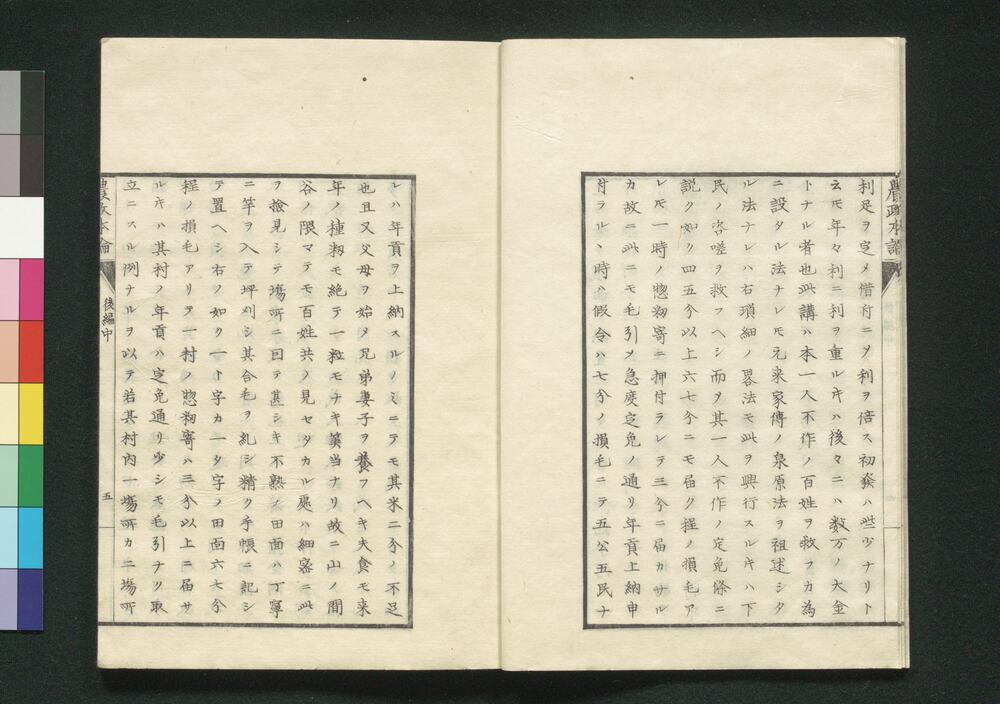 利足ヲ定メ借付ニ〆利ヲ倍ス初發ハ些少ナリト
云モ年々利ニ利ヲ重ルキハ後々ニハ数万ノ大金
トナル者也此講ハ本一人不作ノ百姓ヲ救フカ為
ニ設タル法ナレモ元来家傳ノ泉原法ヲ祖述シタ
ル法ナレハ右瑣細ノ畧法モ此ヲ興行スルキハ下
民ノ咨嗟ヲ救フヘシ而〆其一人不作ノ定免條ニ
説ク如ク四五分以上六七分ニモ届ク程ノ損毛ア
レモ一時ノ惣籾寄ニ押付ラレテ三分ニ届カサル
カ故ニ此ニモ毛引〆急度定免ノ通リ年貢上納申
付ラルヽ時ハ假令ハ七分ノ損毛ニテ五公五民ナ
農政本論
レハ年貢ヲ上納スルノミニテモ其米二分ノ不足
也且又父母ヲ始メ兄弟妻子ヲ養フヘキ夫食モ来
年ノ種籾モ絶テ一粒モナキ筭当ナリ故ニ山ノ間
谷ノ隈マテモ百姓共ノ見セタカル處ハ細密ニ此
ヲ撿見シテ塲所ニ因テ甚シキ不熟ノ田面ハ丁寧
ニ竿ヲ入テ坪刈シ其合毛ヲ糺シ精ク手帳ニ記シ
テ置ヘシ右ノ如ク一ト字カ一タ字ノ田面六七分
程ノ損毛アリテ一村ノ惣籾寄ハ三分以上ニ届サ
ルキハ其村ノ年貢ハ定免通リ少シモ毛引ナク取
立ニスル例ナルヲ以テ若其村内一塲所カ二塲所
農政本論
後編中
五